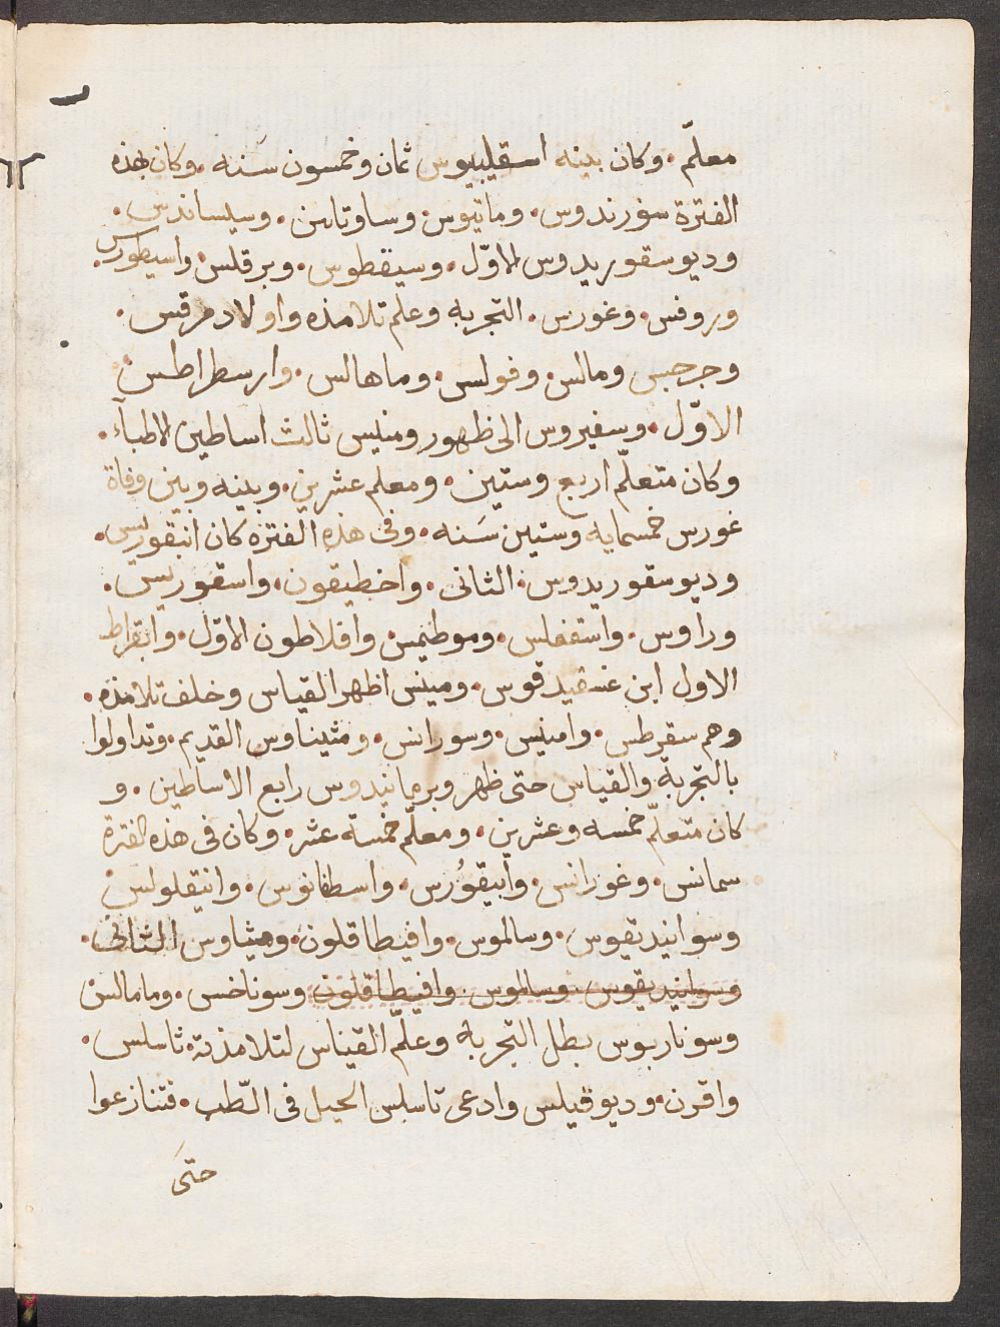 معلّم. وكان بينه اسقليبيوس ثمان وخمسون سَنه. وكان بهذه
الفترة سفورندوس. ومانيوس وساوتاين. وسيساندس.
وديوسقوريدوس الاوّل. وسيقطوس. وبرقلس واسيطورس.
وروفس. وغورس. التجربه وعلم تلامذه واولاد مرقس.
وجرجيس ومالس وفولس. وماهالس. وارسطراطس
الاوّل. وسفيروس الى ظهور ومنيس ثالث اساطين الاطبآء.
وكان متعلّم اربع وستين. ومعلم عشرين. وبينه وبين وفاة
غورس خمسمايه وستين سَنه. وفى هذه الفتره كان ابنقوريس.
وديوسقوريدوس. الثانى. واخطيقون. واسقوريس.
وراوس. واسقفلس. وموطيمس وافلاطون الاوّل. وابقراط
الاول ابن غسقيدقوس. ومينس اظهر القياس وخلف تلامذه.
وهم سقرطس. وامينس. وسورانس. ومثيناوس القديم. وتداولوا
بالتجربة والقياس حتى ظهر وبرمانيدوس رابع الاساطين. و
كان متعلّم خمسه وعشرين. ومعلّم خمسة عشر. وكان فى هذه الفترة
سمانس. وغورانس. وابيقُورس. واسطفانوس. وانيقلولس
وسوانيديقوس. وسالموس. وافيطاقلون. وميثاوس الثانى.
وسوانيديقوس وسالموس وافيطاقلون وسوناخس. ومامالس
وسوناربوس بطل التجربه وعلّم القياس لتلامذته. ثاسلس.
واقرن. وديوقيلس وادعى تاسلس الحيل فى الطّب. فتنازعوا
حتىَ